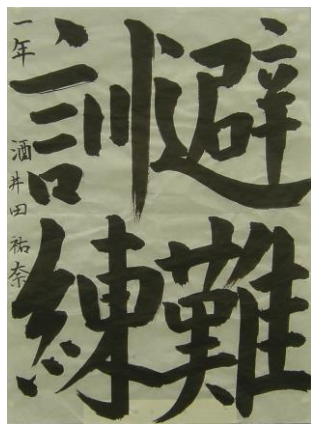 避難
訓練
一年 酒井田 祐奈